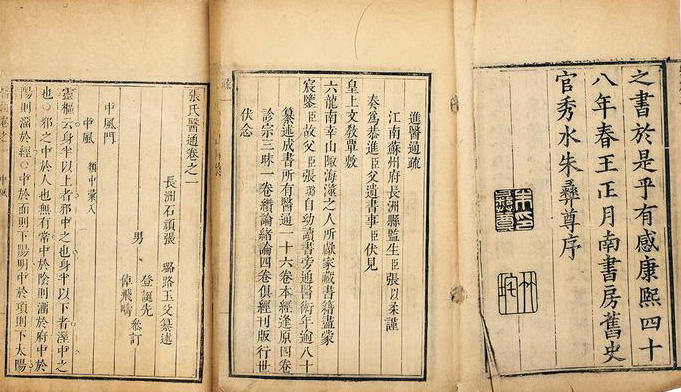 之書於是乎有感康熙四十
八年春王正月南書房舊史
官秀水朱彝尊序
進醫通疏
江南蘇州府長洲縣監生臣張以柔謹
奏為恭進臣父遺書事臣伏見
皇上文教覃敷
六龍南幸山陬海澨之人所獻家藏書籍盡蒙
宸鑒臣故父臣張璐自幼讀書旁通醫術年逾八十
纂述成書所有醫通一十六卷本經逢原四卷
診宗三昧一卷纘論緒論四卷俱經刊版行世
伏念
張氏醫通卷之一
長洲石頑張 璐路玉父纂述
男 登誕先
倬飛疇 參訂
中風門
中風 類中彙入
靈樞云身半以上者邪中之也身半以下者溼中之
也○邪之中於人也無有常中於陰則溜於府中於
陽則溜於經○中於面則下陽明中於項則下太陽